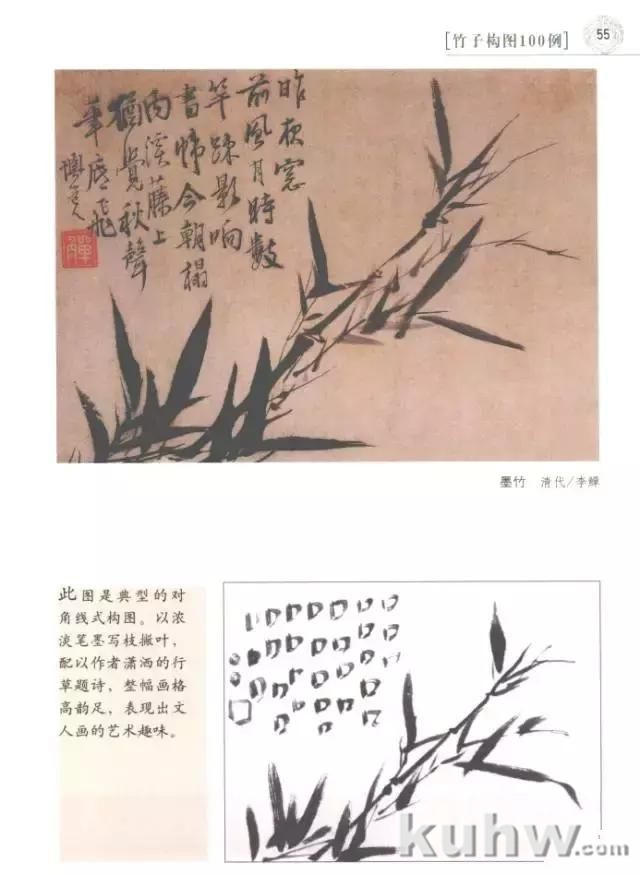 [竹子构图100例] 55
昨夜窓
前風月時數
竿踈影响
書幃今朝搨
向溪藤上
猶覺秋聲
筆底飛
墨竹 清代/李鱓
此图是典型的对
角线式构图。以浓
淡笔墨写枝撇叶，
配以作者潇洒的行
草题诗，整幅画格
高韵足，表现出文
人画的艺术趣味。
kuhw.com